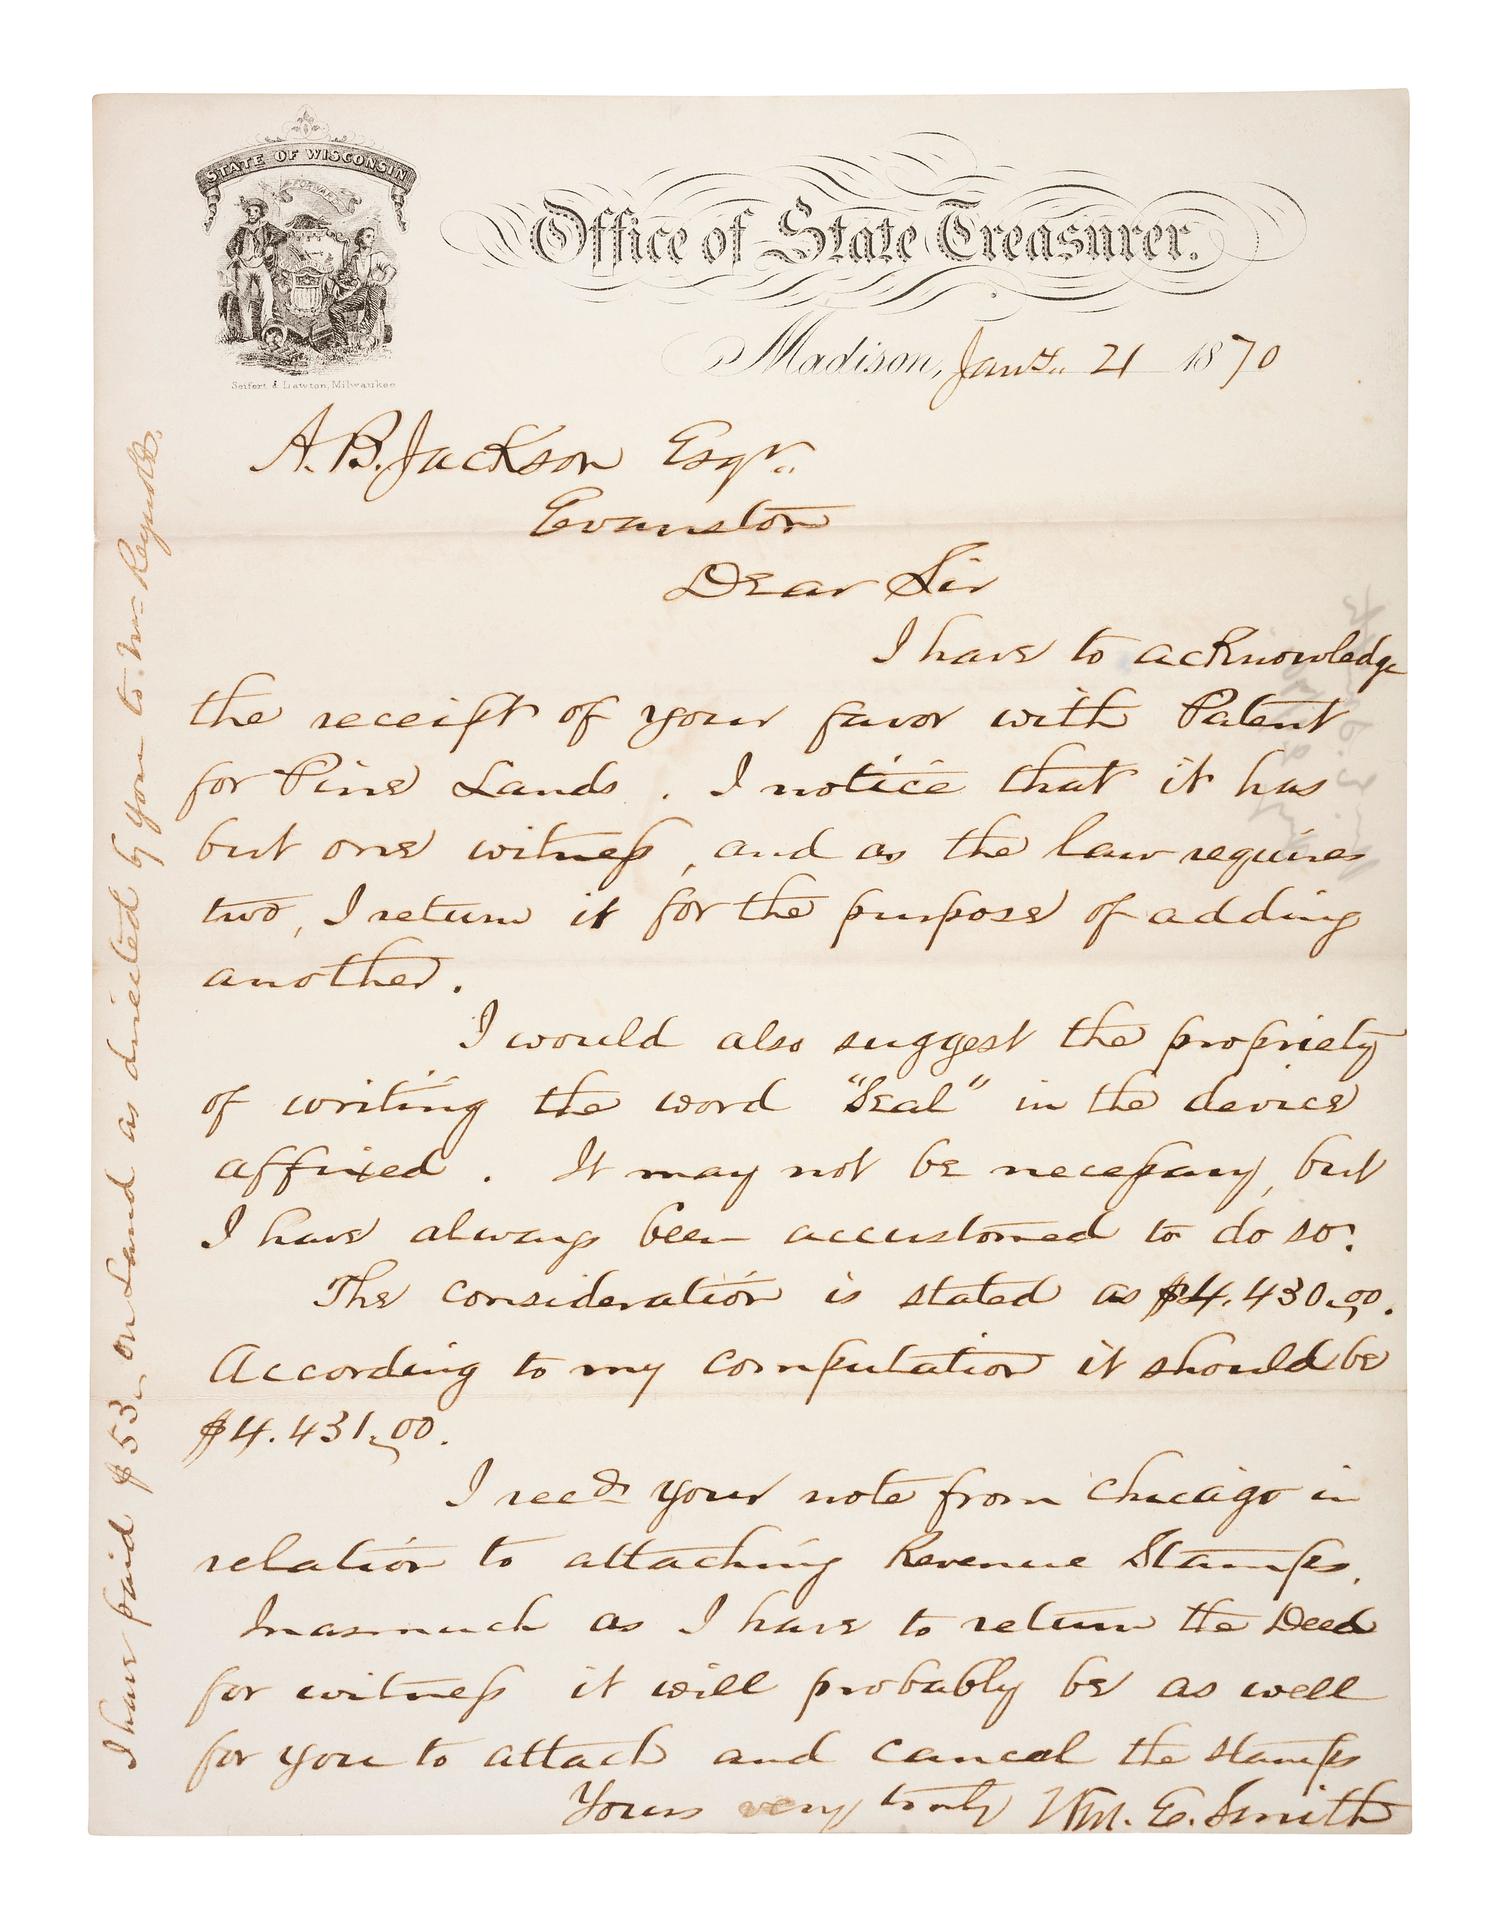 STATE OF WISCONSIN
FORWARD
Seifert & Lawton, Milwaukee
Office of State Treasurer.
Madison, Jany. 21 1870
A. B. Jackson Esqr.
Evanston
Dear Sir
I have to acknowledge
the receipt of your favor with Patent
for Pine Lands. I notice that it has
but one witness, and as the law requires
two, I return it for the purpose of adding
another.
I would also suggest the propriety
of writing the word "Seal" in the device
affixed. It may not be necessary, but
I have always been accustomed to do so.
The consideration is stated as $4.430.00.
According to my computation it should be
$4.431.00.
I recd your note from Chicago in
relation to attaching Revenue Stamps.
Inasmuch as I have to return the Deed
for witness it will probably be as well
for you to attach and cancel the stamps
Yours very truly Wm. E. Smith
I have paid $53 on Land as directed by you to Mr